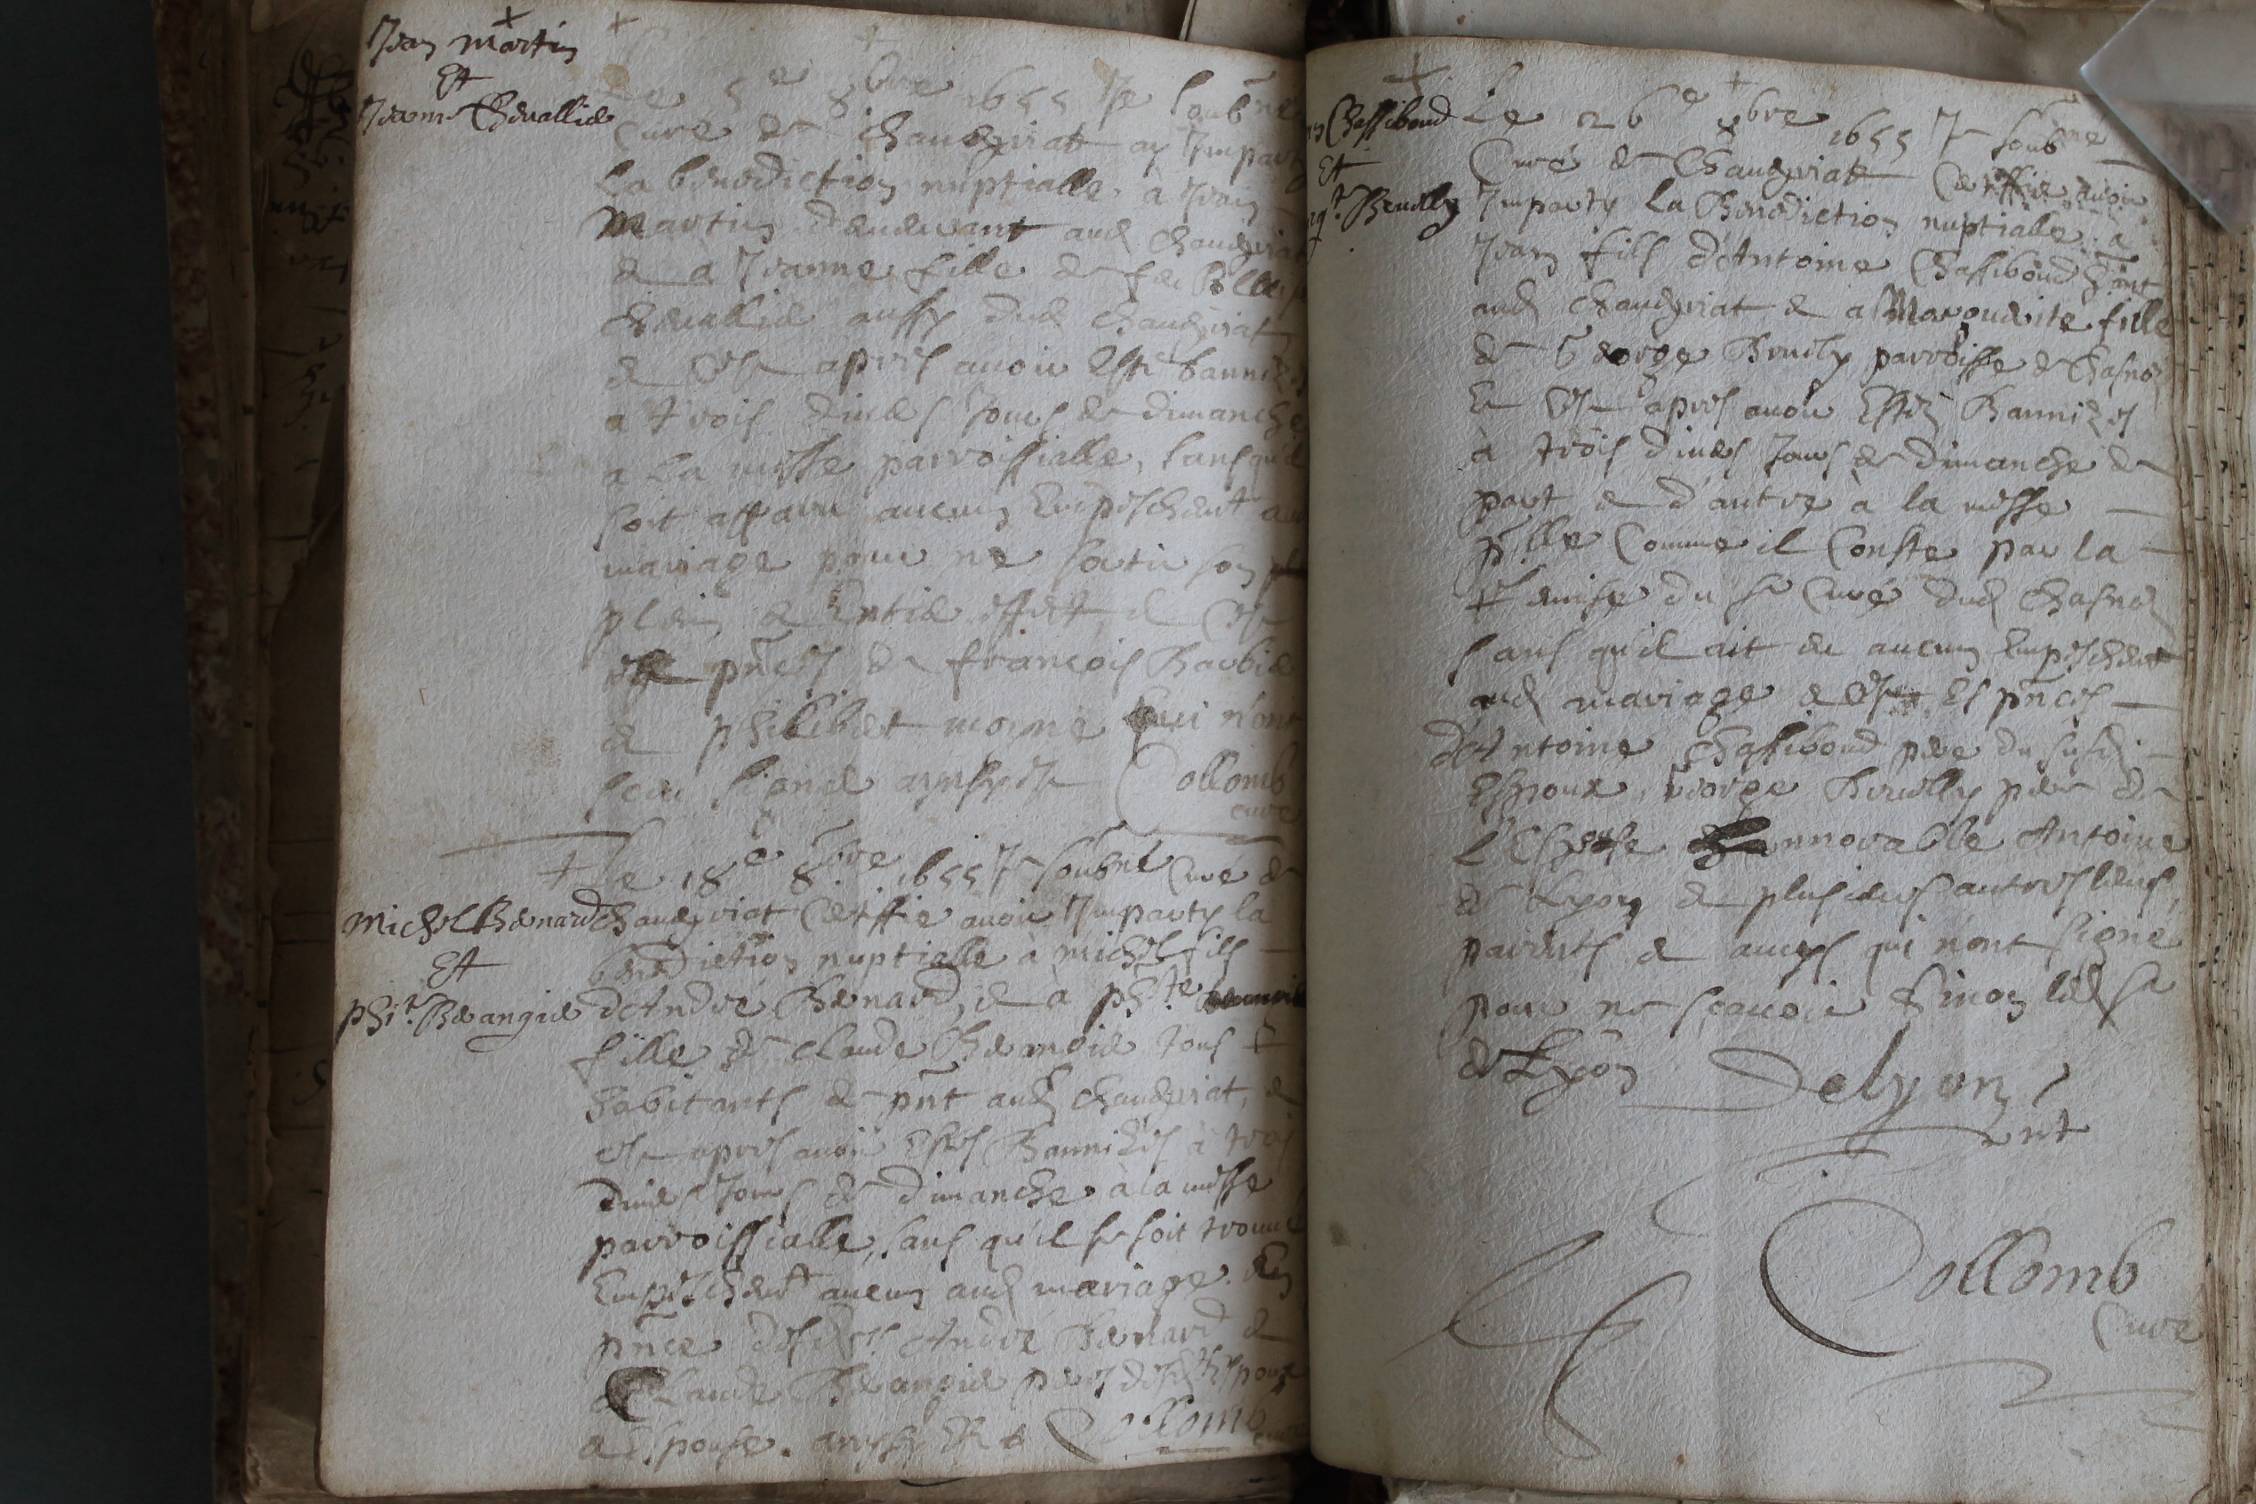 Jean martin
Et
Jeanne Chevallier
Le 5e 8bre 1655 Je soubne
Curé de chaveyriat ay Imparty
La benediction nuptialle à Jean
Martin demeurant aud chaveyriat
& a Jeanne fille de feu
Chevallier aussy dud Chaveyriat
& Ce apres avoir Esté bannizes
a trois divers Jours de dimanche
a La messe parroissialle, sans quil
soit apparu aucun Empeschemt au
mariage pour ne sortir son
plein & Entier effect, & Ce
es pnces de françois Barbier
& philibert morne qui n'ont
sceu signer aynsy Est Collomb
curé
Le 18e 8bre 1655 Je soubné Curé de
Michel Benard chaveyriat Certiffie avoir Imparty la
Et benediction nuptialle à michel fils
phite Berangier d'André Benard, & a phte
fille de claude Beranger tous
habitants de pnt aud chaveyriat, &
Ce apres avoir Estés Bannizés à trois
divers Jours de dimanche à la messe
parroissialle, sans qu'il se soit trouvé
Empeschemt aucun aud mariage. En
pnce desdts André Benard &
Claude Berangier peres desd Espoux
& Espouse. aynsy Est Collomb
Chassiboud
Et
Margte Breuilly
Le 26e 9bre 1655 Je soubne
Curé de Chaveyriat Certiffie avoir
Imparty La Benediction nuptialle. a
Jean fils d'Antoine Chassiboud
aud chaveyriat & a Marguerite fille
de George Breuilly parroisse de Chasnoz
& Ce apres avoir Estéz Bannizes
à trois divers Jours de dimanche de
part & d'autre à la messe
plle Comme il Conste par la
remise du sr Curé dud chasnoz
sans qu'il ait eu aucun Empeschemt
aud mariage & Ce Es pnces
d'Antoine Chassiboud pere du susd
Espoux, George Breuilly pere de
L'Espouse honnorable Antoine
de Lyon & plusieurs autres leurs
parents & amys qui n'ont signé
pour ne sçavoir sinon led sr
de Lyon Delyon
Collomb
Curé